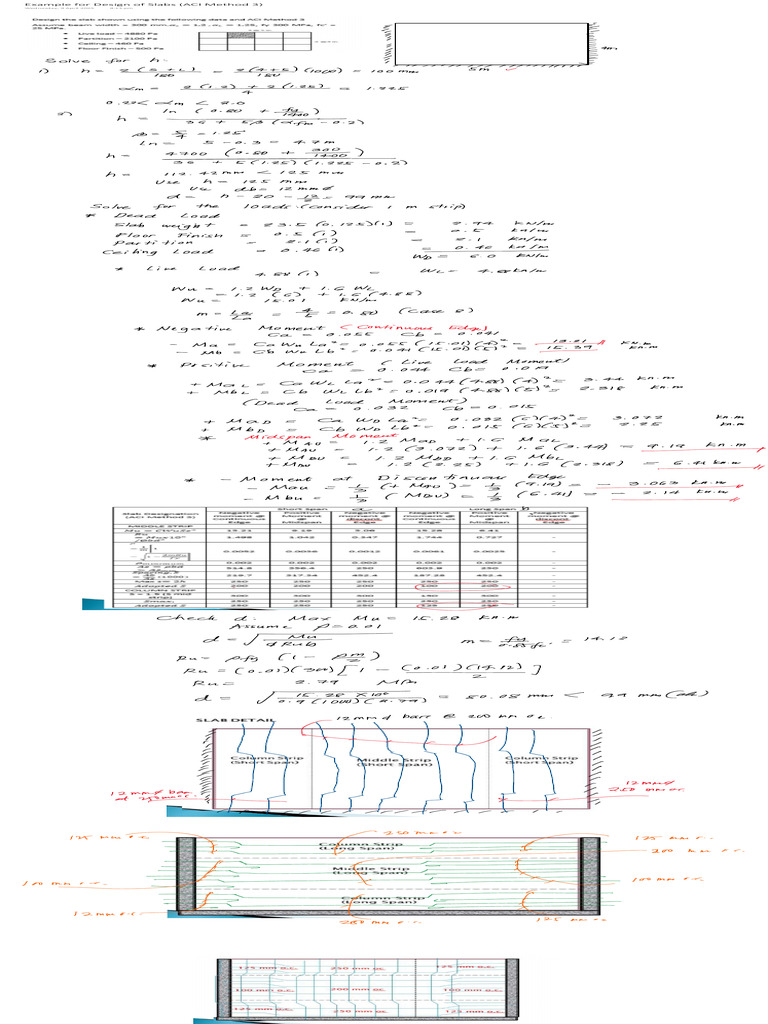 Example for Design of Slabs (ACI Method 3)
Design the slab shown using the following data and ACI Method 3
Assume beam width = 300 mm
25 MPa
• Live load – 4880 Pa
• Partition – 2100 Pa
• Ceiling – 460 Pa
• Floor Finish – 500 Pa
5m
Solve for h:
1) h = 2(S+L)/180 = 2(4+5)/180 (1000) = 100 mm
αm = 2(1.2) + 2(1.25)/4 = 1.225
0.2 < αm < 2.0
2) h = ln (0.80 + fy/1400) / 36 + 5β (αfm - 0.2)
β = 5/4 = 1.25
ln = 5 - 0.3 = 4.7m
h = 4700 (0.80 + 300/1400) / 36 + 5(1.25)(1.225 - 0.2)
h = 112.42mm < 125 mm
Use h = 125 mm
Use db = 12mmφ
d = h - 20 - 12/2 = 99 mm
Solve for the loads: (consider 1 m strip)
* Dead Load
Slab weight = 23.5 (0.125)(1) = 2.94 kN/m
Floor Finish = 0.5 (1) = 0.5 kN/m
Partition = 2.1 (1) = 2.1 kN/m
Ceiling Load = 0.46 (1) = 0.46 kN/m
WD = 6.0 kN/m
* Live Load
4.88 (1) = WL = 4.88 kN/m
Wu = 1.2 WD + 1.6 WL
= 1.2 (6) + 1.6 (4.88)
Wu = 15.01 kN/m
m = La/Lb = 4/5 = 0.80 (Case 8)
* Negative Moment (Continuous Edge)
Ca = 0.055 Cb = 0.041
- Ma = Ca Wu La² = 0.055 (15.01)(4)² = 13.21 kN.m
- Mb = Cb Wu Lb² = 0.041 (15.01)(5)² = 15.39 kN.m
* Positive Moment (Live Load Moment)
Ca = 0.044 Cb = 0.019
+ MaL = Ca WL La² = 0.044 (4.88)(4)² = 3.44 kN.m
+ MbL = Cb WL Lb² = 0.019 (4.88)(5)² = 2.318 kN.m
(Dead Load Moment)
Ca = 0.032 Cb = 0.015
+ MaD = Ca WD La² = 0.032 (6)(4)² = 3.072 kN.m
+ MbD = Cb WD Lb² = 0.015 (6)(5)² = 2.25 kN.m
* Midspan Moment
+ MAU = 1.2 MaD + 1.6 MaL
+ MAU = 1.2 (3.072) + 1.6 (3.44) = 9.19 kN.m
+ MBU = 1.2 MbD + 1.6 MbL
+ MBU = 1.2 (2.25) + 1.6 (2.318) = 6.41 kN.m
* - Moment at Discontinuous Edge
- Mau = 1/3 (+ MAU) = 1/3 (9.19) = - 3.063 kN.m
- Mbu = 1/3 (MBU) = 1/3 (6.41) = - 2.14 kN.m
Slab Designation (ACI Method 3) Short Span a Long Span b
Negative moment @ Continuous Edge Positive Moment @ Midspan Negative moment @ discont Edge Negative moment @ Continuous Edge Positive Moment @ Midspan Negative moment @ discont Edge
MIDDLE STRIP
13.21 9.19 3.06 15.28 6.41 -
1.498 1.042 0.347 1.744 0.727 -
0.0052 0.0036 0.0012 0.0061 0.0025 -
0.002 0.002 0.002
250 250 250 250 250 -
Adopted S 200 200 200 100 200 -
COLUMN STRIP
300 300 300 150 300 -
250 250 250 250 250 -
Adopted S 250 250 250 125 250 -
Check d: Max Mu = 15.28 kN.m
Assume ρ = 0.01
d = √ Mu / φ Ru b m = fy/0.85 fc' = 14.12
Ru = ρfy (1 - ρm/2)
Ru = (0.01)(300) [1 - (0.01)(14.12)/2]
Ru = 2.79 MPa
d = √ 15.28 x10⁶ / 0.9 (1000)(2.79) = 80.08 mm < 99 mm (ok)
SLAB DETAIL 12mmφ bars @ 200 mm o.c.
Column Strip (Short Span) Middle Strip (Short Span) Column Strip (Short Span)
12mmφ bars
12mmφ
250 mm o.c.
125 mm o.c. 250 mm o.c. 125 mm o.c.
Column Strip (Long Span)
200 mm o.c.
Middle Strip (Long Span)
100 mm o.c. 100 mm o.c.
Column Strip (Long Span)
250 mm o.c.
125 mm o.c. 250 mm oc. 125 mm o.c.
100 mm o.c. 200 mm oc. 100 mm o.c.
125 mm o.c. 250 mm oc. 125 mm o.c.